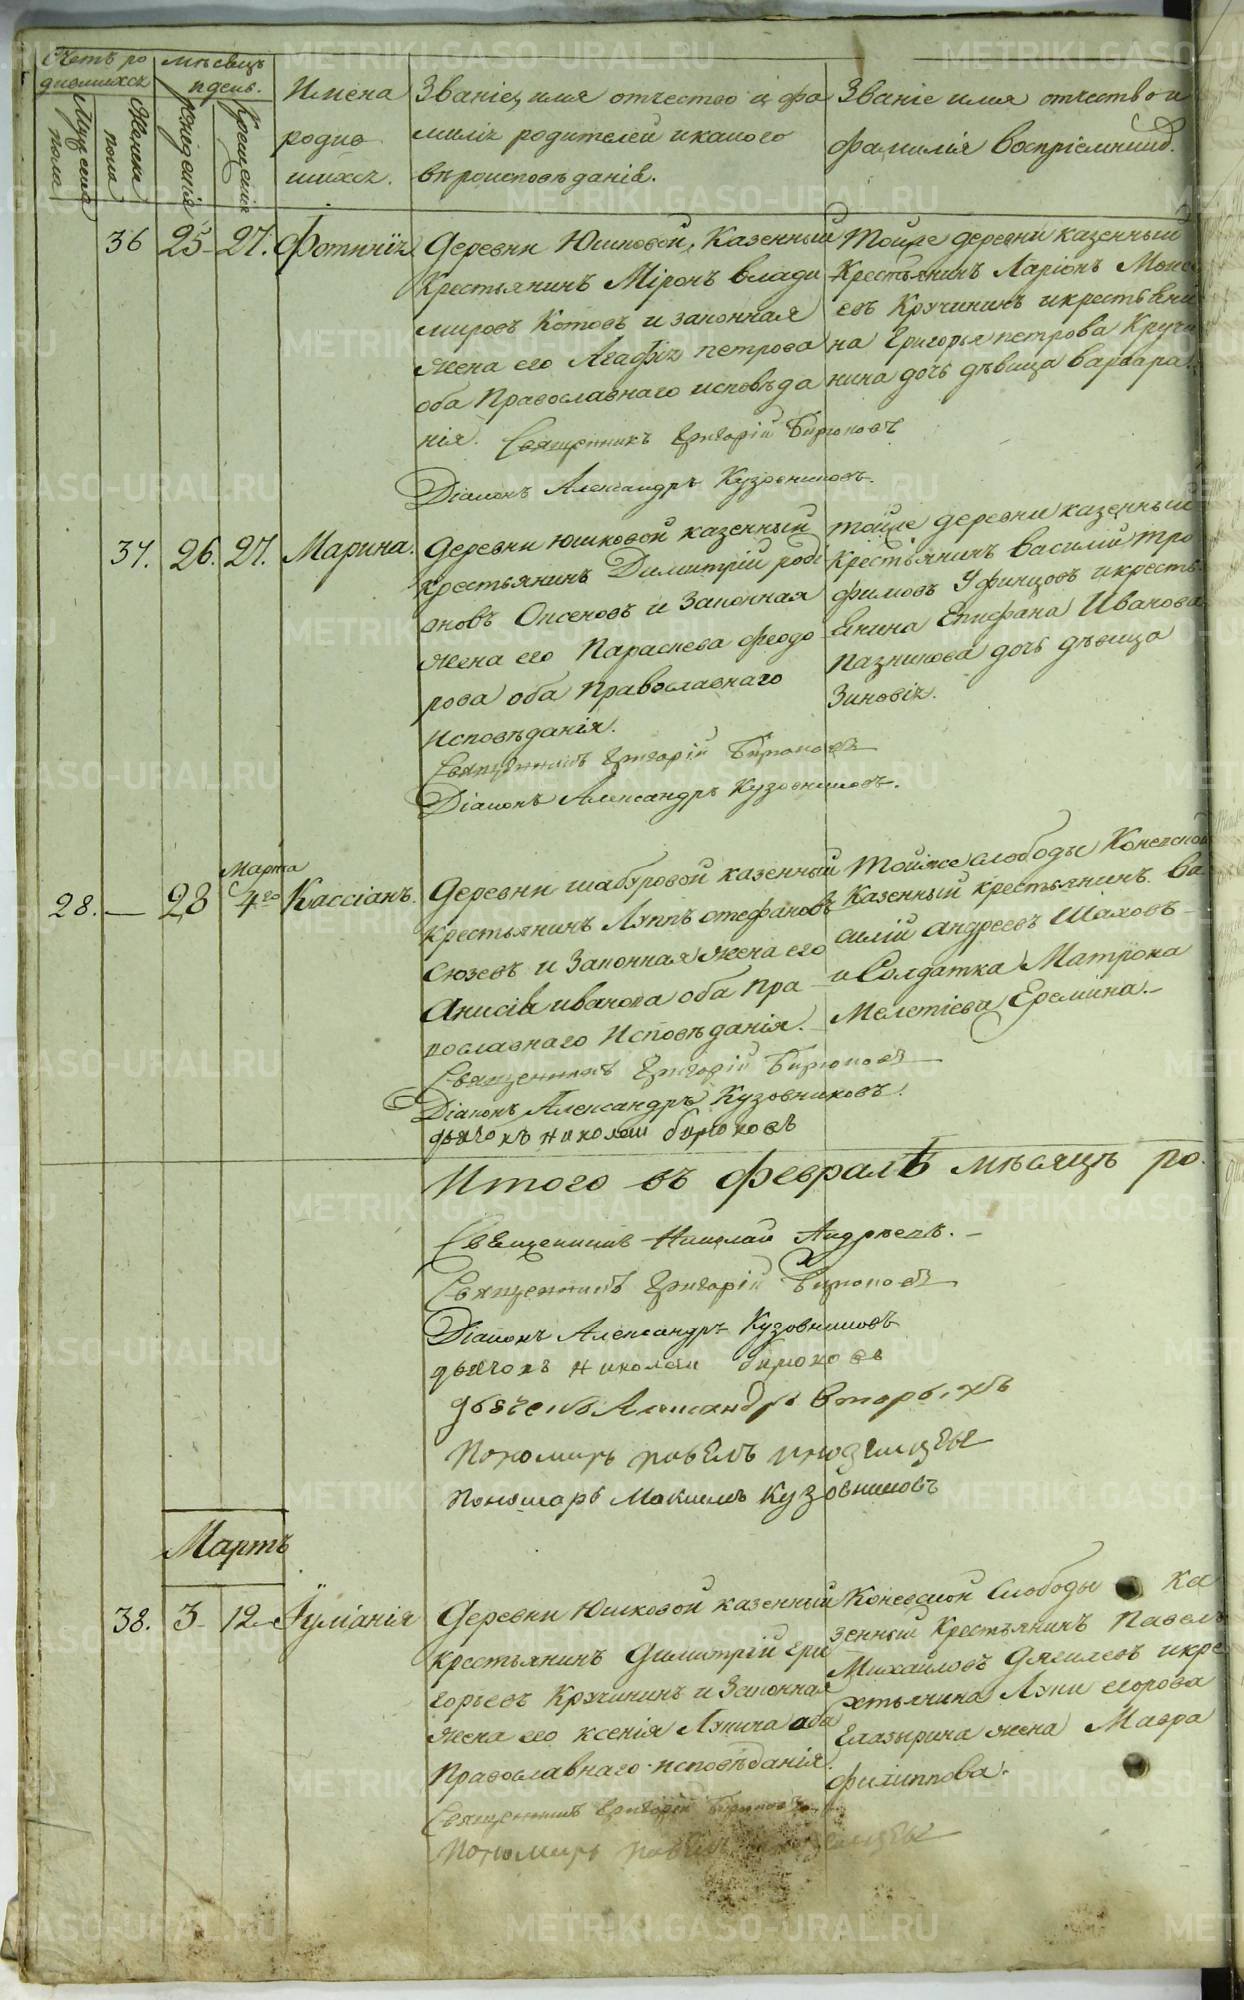 Счетъ ро
дившихся
Мужеска
пола
Женска
пола
мѣсяцъ
и день.
рожденія
крещенія
Имена
родив
шихся.
Званіе, имя отчество и фа
милія родителей и какого
вѣроисповѣданія.
Званіе имя отчество и
фамилія воспріемник.
36
25
27.
Фотинія
Деревни Юшковой, Казенный
Крестьянинъ Міронъ Влади
мировъ Котовъ и законная
жена его Агафія петрова
оба Православнаго исповѣда
нія.
Священникъ Григорій Бирюковъ
Діаконъ Александръ Кузовниковъ.
Тойже деревни казенный
Крестьянинъ Ларіонъ Моис
евъ Кручининъ и крестьяни
на Григорья петрова Кручи
нина дочь дѣвица варвара.
37.
26.
27.
Марина.
Деревни юшковой казенный
крестьянинъ Димитрій роді
оновъ Оксеновъ и Законная
жена его Параскева феодо
рова оба Православнаго
исповѣданія.
Священникъ Григорій Бирюковъ
Діаконъ Александръ Кузовниковъ.
тойже деревни казенный
крестьянинъ василій тро
фимовъ Уфинцовъ и кресть
янина Епифана Иванова
Пазникова дочь дѣвица
Зиновія.
28.
28
Марта
4го
Кассіанъ.
Деревни шабуровой казенный
крестьянинъ Луппъ стефановъ
Сюзевъ и Законная жена его
Анисія иванова оба Пра
вославнаго Исповѣданія.
Священникъ Григорій Бирюковъ
Діаконъ Александръ Кузовниковъ.
дьячокъ николай бирюковъ
Тойже слободы Коневской
Казенный крестьянинъ Ва
силій андреевъ Шаховъ
и Солдатка Матрона
Мелетіева Еремина.
Итого въ февралѣ мѣсяцѣ ро.
Священникъ Николай Андреевъ.
Священникъ Григорій Бирюковъ
Діаконъ Александръ Кузовниковъ
дьячокъ николай бирюковъ
дьячекъ Александръ Вторыхъ
Пономарь павелъ иноземцы
Пономарь Максимъ Кузовниковъ
Мартъ
38.
3
12
Іуліанія
Деревни Юшковой казенный
Крестьянинъ Димитрій гри
горьевъ Кручининъ и Законная
жена его ксенія Лукина оба
Православнаго исповѣданія.
Священникъ Григорій Бирюковъ
Пономарь павелъ иноземцы
Коневской Слободы ка
зенный Крестьянинъ Павелъ
Михайловъ Дягилевъ и кре
стьянина Луки егорова
Глазырина жена Мавра
филиппова.